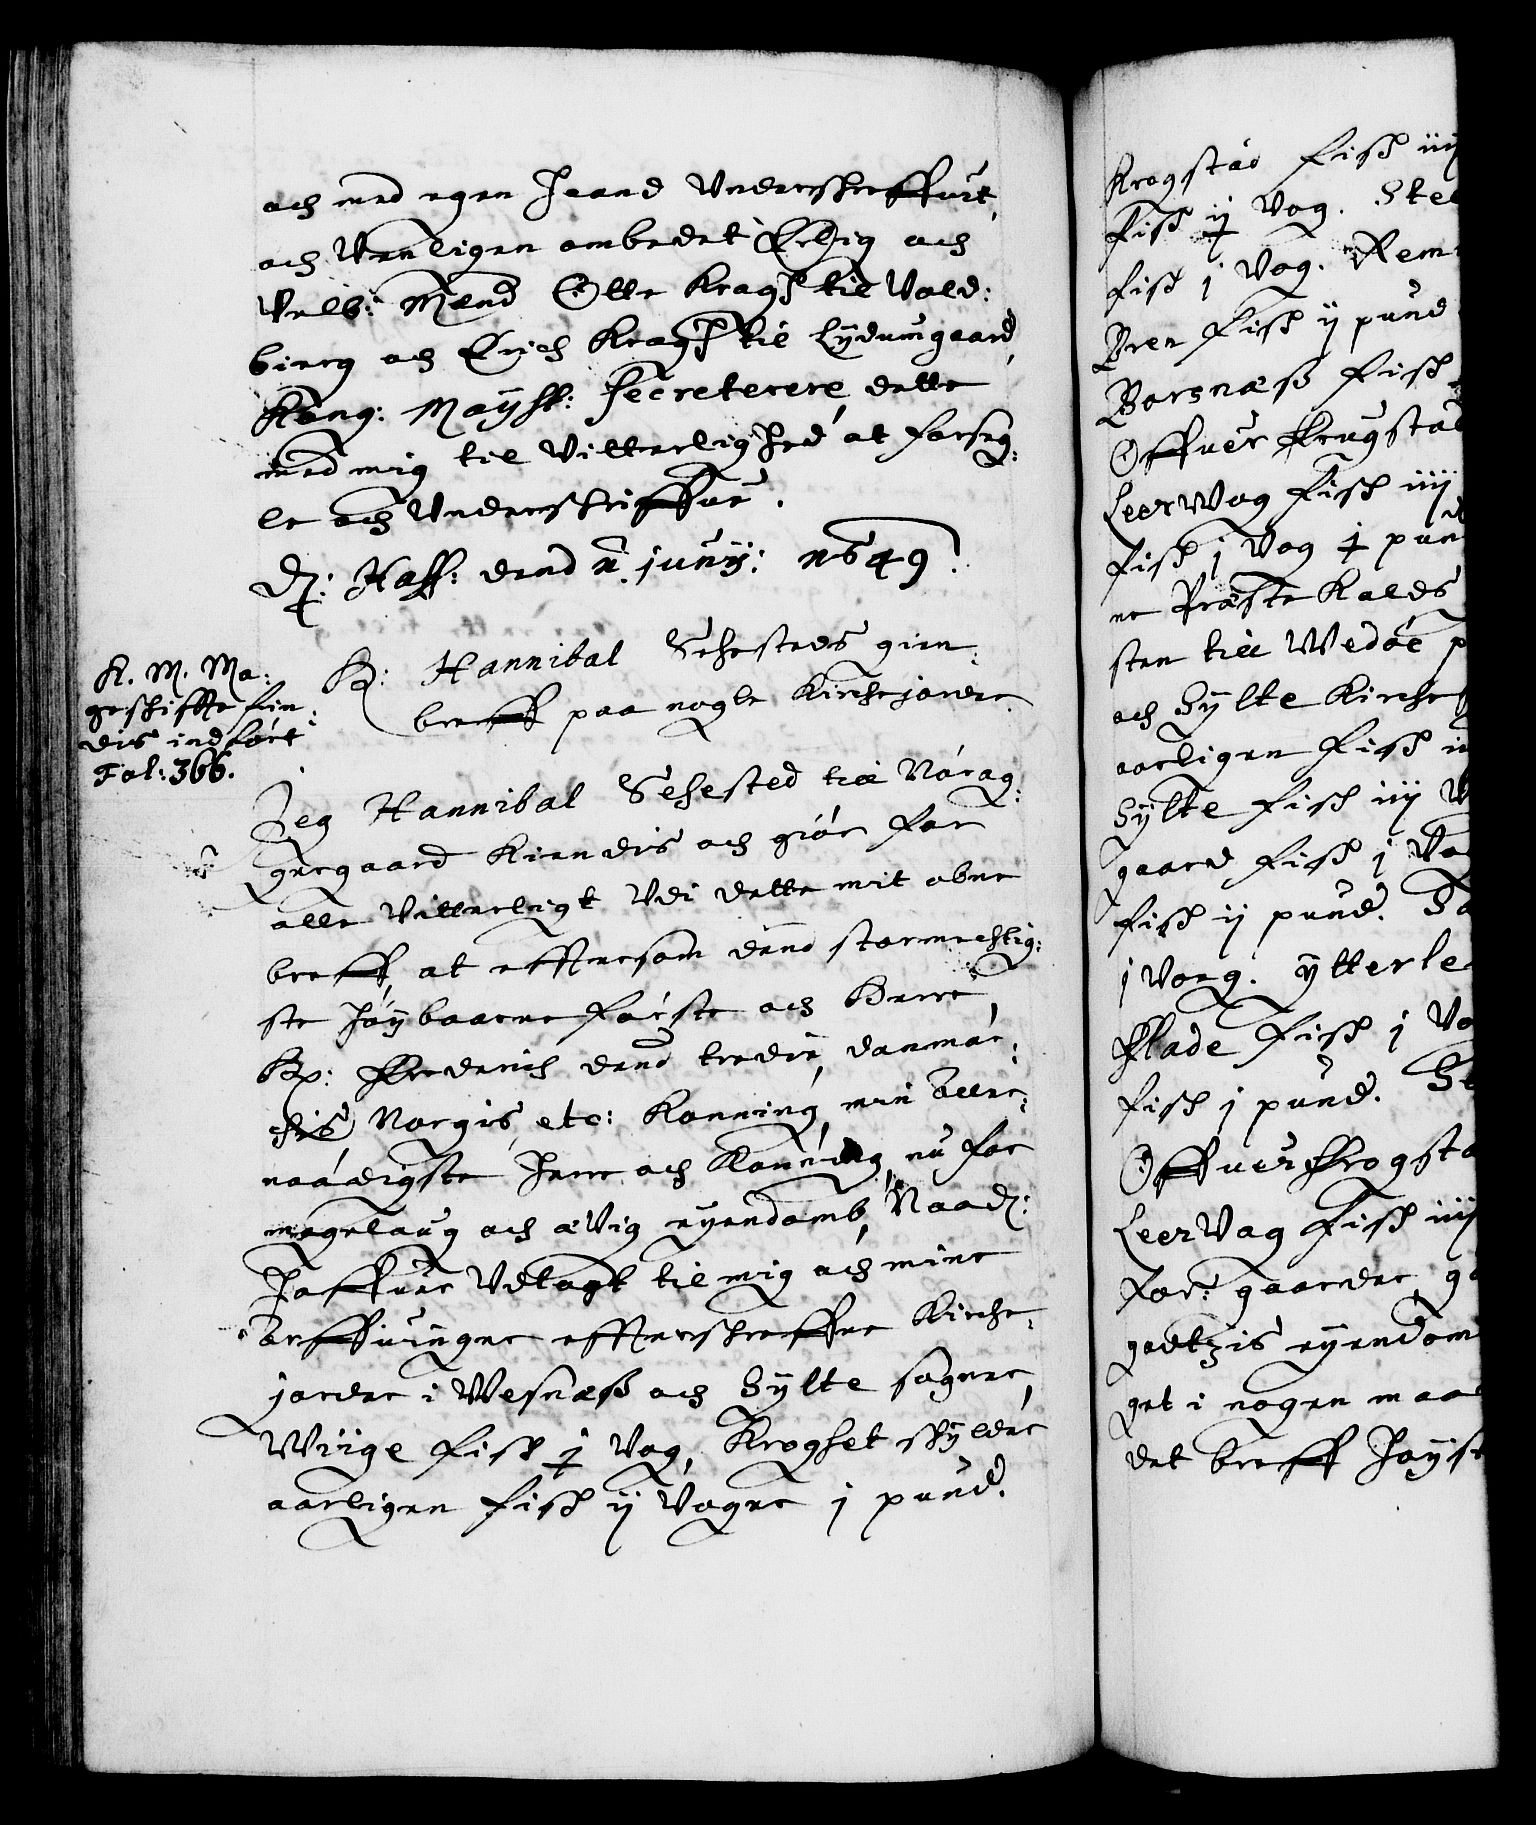 och med egen Haand Underschreffuit,
och Venligen ombedet Erlig och
Velb: Mend Otte Kragh til Vold:
bierg och Erich Kragh til Lydumgaard,
Kong: Mayst: Secreterere, dette
med mig til Vitterlighed at forseg:
le och Underschriffue.
D: Haff: dend 11. junij: 1649.
K. M. Ma:
geschiffte fin:
dis indført
Fol: 366.
H: Hannibal Sehesteds gien:
breff paa nogle Kirchejorder.
Jeg Hannibal Sehested till Nörag:
gergaard Kiendis och giör for
alle Vitterligt Udi dette mit obne
breff, at effttersom dend stormechtig:
ste Höybaarne förste och Herre,
Her: Frederich dend tredie, danmar:
chis Norgis, etc: Konning, min aller:
naadigste Herre och Konning, nu for
magelaug och ævig eyendomb, Naad:
Haffuer Udlagt til mig och mine
Arffvinger effterschreffne Kirche:
jorder i Wesnæß och Sylte sogner,
Wiige fisk j Vog, Kroghet schylder
aarligen fisch ij Voger j pund.
Krogstad fisch iiij
fisch ij Vog. Stel
fisch j Vog. Rem
Bren fisch ij pund
Borsnæß fisch
Offuer Krugstad
LeerWog fisch iiij
fisch j Vog j pund
ne Præste Kalds
sten till Wedöe p
och Sylte Kirche
aarligen fisch
Sylte fisch iij V
gaard fisch j Vo
fisch ij pund. Sa
j Vog. ytterle
Flade fisch j Vo
fisch j pund. St
Offuer Krogsta
LeerVag fisch iiij
for: gaarder, g
godtzis eyendom
get i nogen maa
det breff Höyst